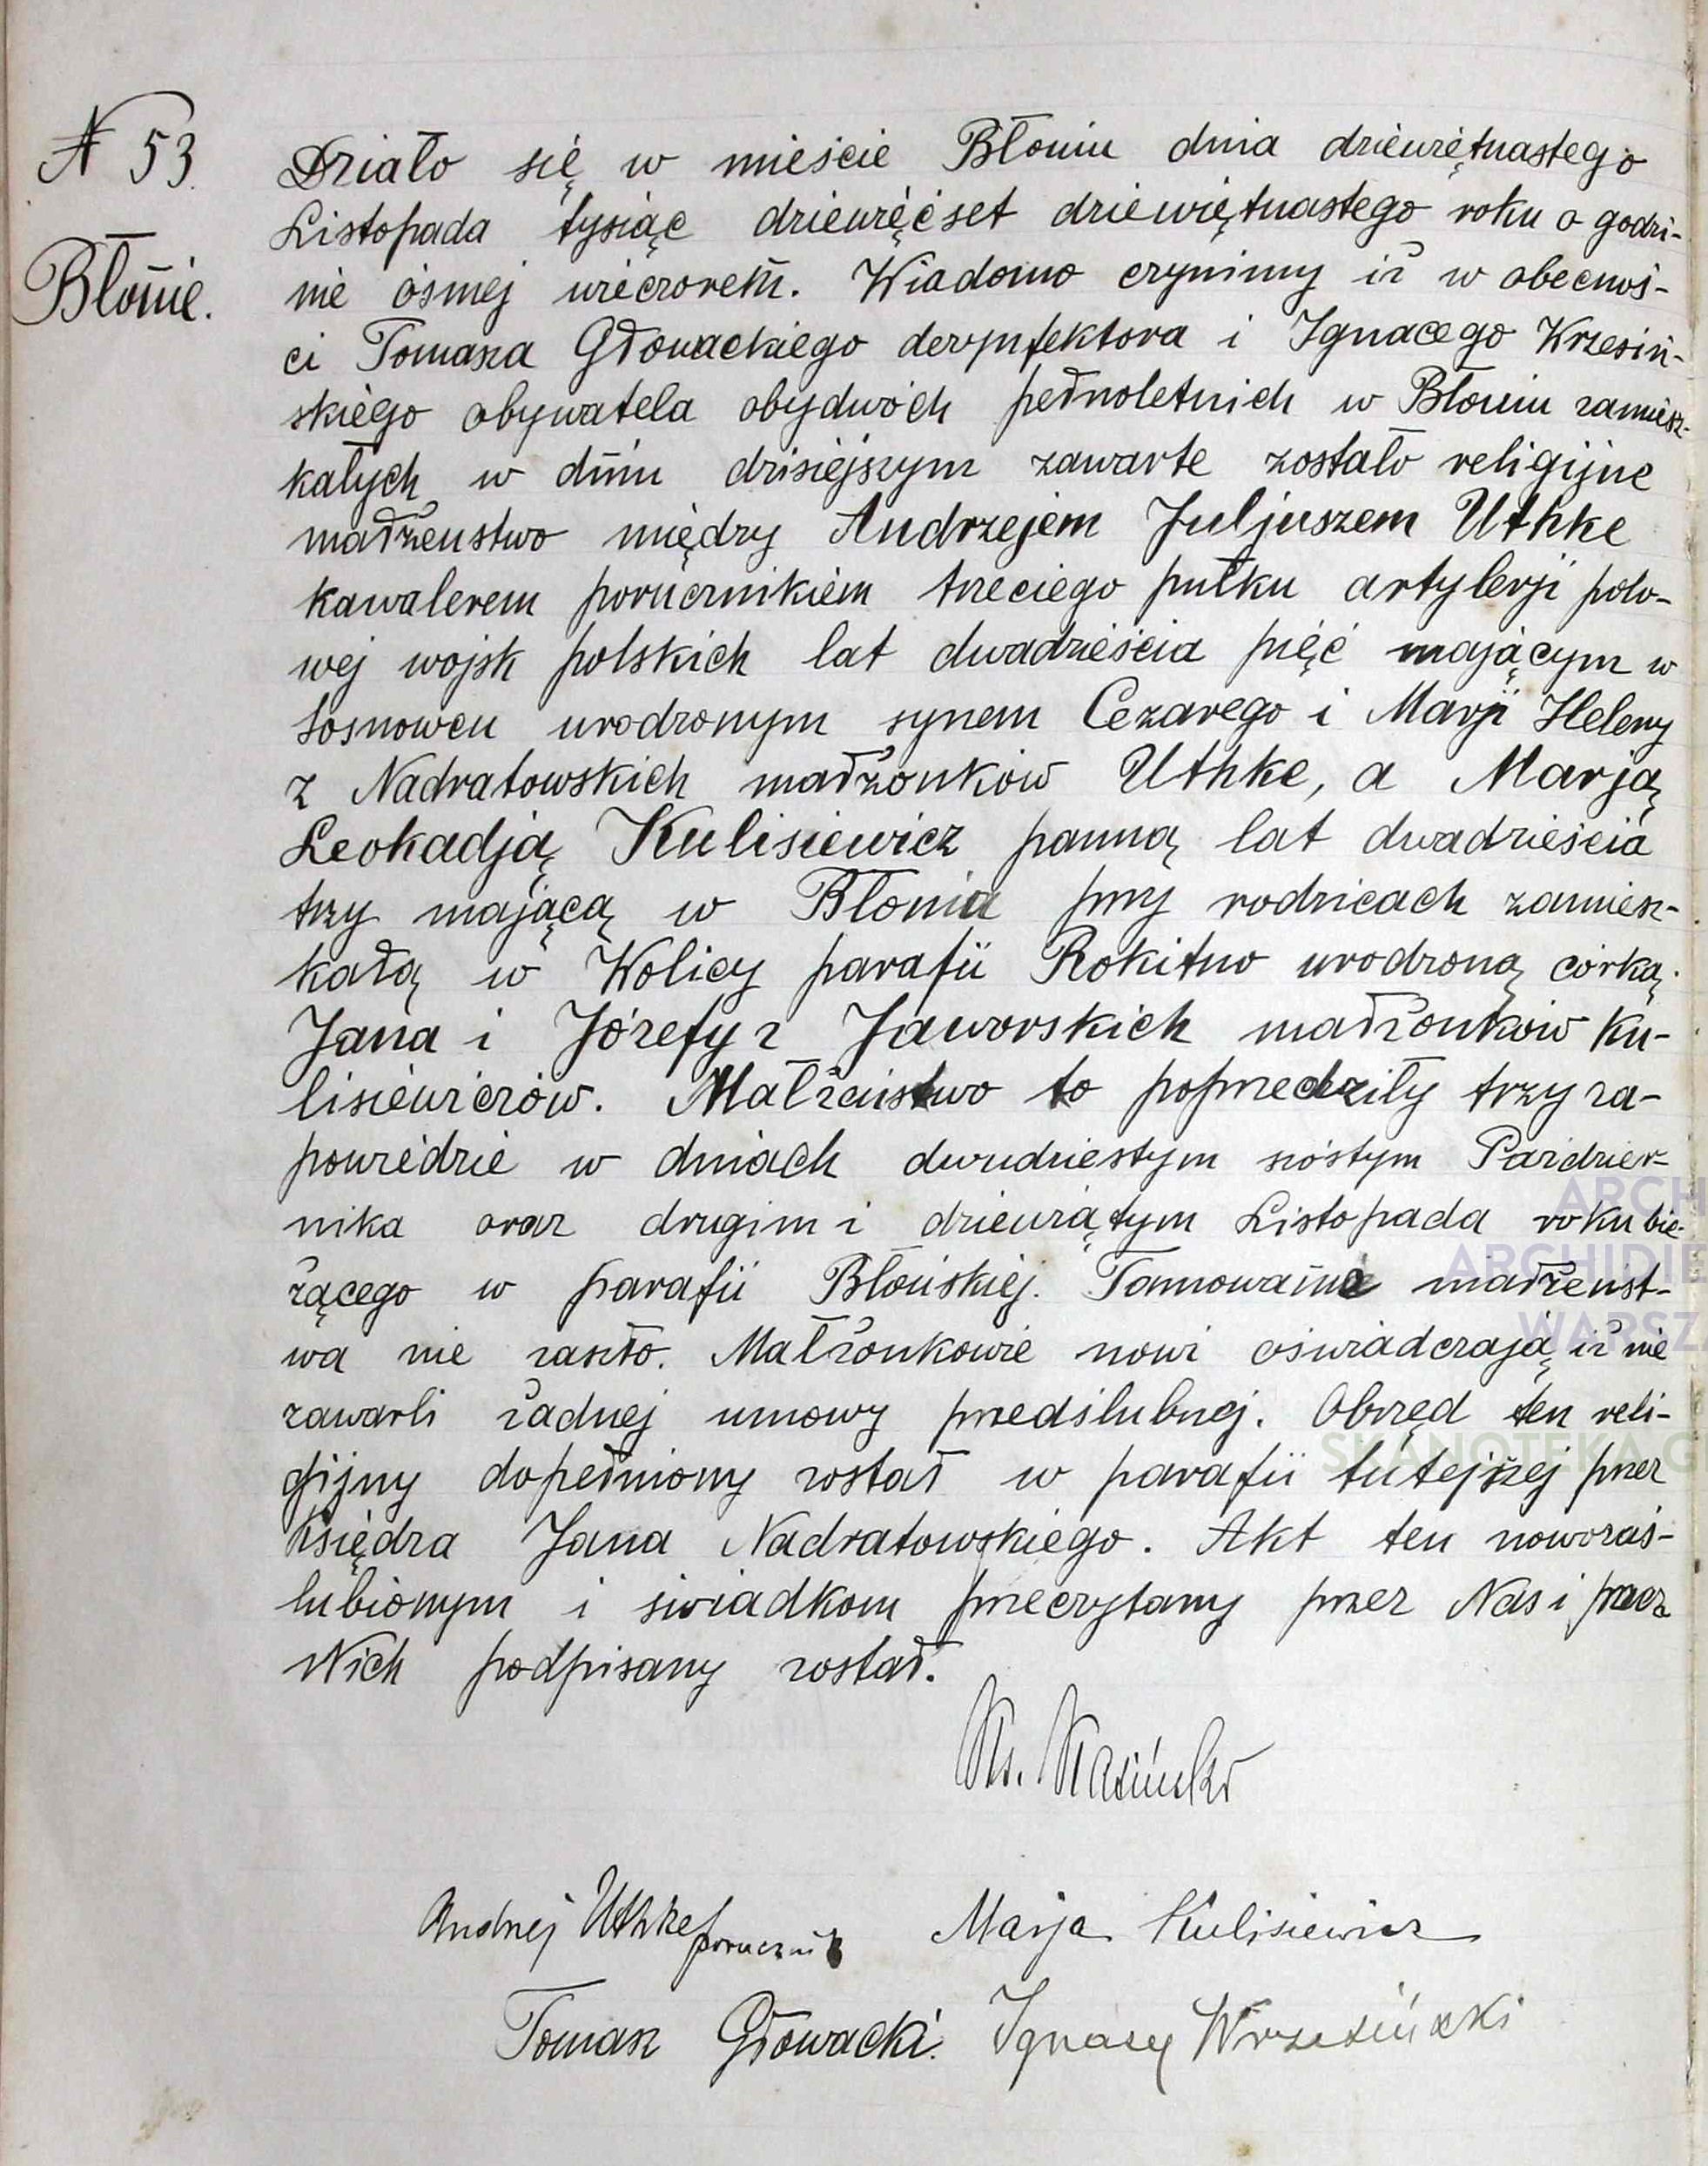 № 53.
Błonie.
Działo się w mieście Błoniu dnia dziewiętnastego
Listopada tysiąc dziewięćset dziewiętnastego roku o godzi-
nie ósmej wieczorem. Wiadomo czynimy iż w obecnoś-
ci Tomasza Głowackiego dezynfektora i Ignacego Wrzesiń-
skiego obywatela obydwóch pełnoletnich w Błoniu zamiesz-
kałych w dniu dzisiejszym zawarte zostało religijne
małżeństwo między Andrzejem Juljuszem Uthke
kawalerem porucznikiem trzeciego pułku artylerji polo-
wej wojsk polskich lat dwadzieścia pięć mającym w
Sosnowcu urodzonym synem Cezarego i Marji Heleny
z Nadratowskich małżonków Uthke, a Marją
Leokadją Kulisiewicz panną lat dwadzieścia
trzy mającą w Błoniu przy rodzicach zamiesz-
kałą w Wolicy parafii Rokitno urodzoną córką
Jana i Józefy z Jaworskich małżonków Ku-
lisiewiczów. Małżeństwo to poprzedziły trzy za-
powiedzie w dniach dwudziestym szóstym Paździer-
nika oraz drugim i dziewiątym Listopada roku bie-
żącego w parafii Błońskiej. Tamowanie małżeńst-
wa nie zaszło. Małżonkowie nowi oświadczają iż nie
zawarli żadnej umowy przedślubnej. Obrzęd ten reli-
gijny dopełniony został w parafii tutejszej przez
Księdza Jana Nadratowskiego. Akt ten nowozaś-
lubionym i świadkom przeczytany przez Nas i przez
Nich podpisany został.
Ks.
Andrzej Uthke porucznik Marja Kulisiewicz
Tomasz Głowacki. Ignacy Wrzesiński
ARCH
ARCHIDIE
WARSZ
SKANOTEKA.G